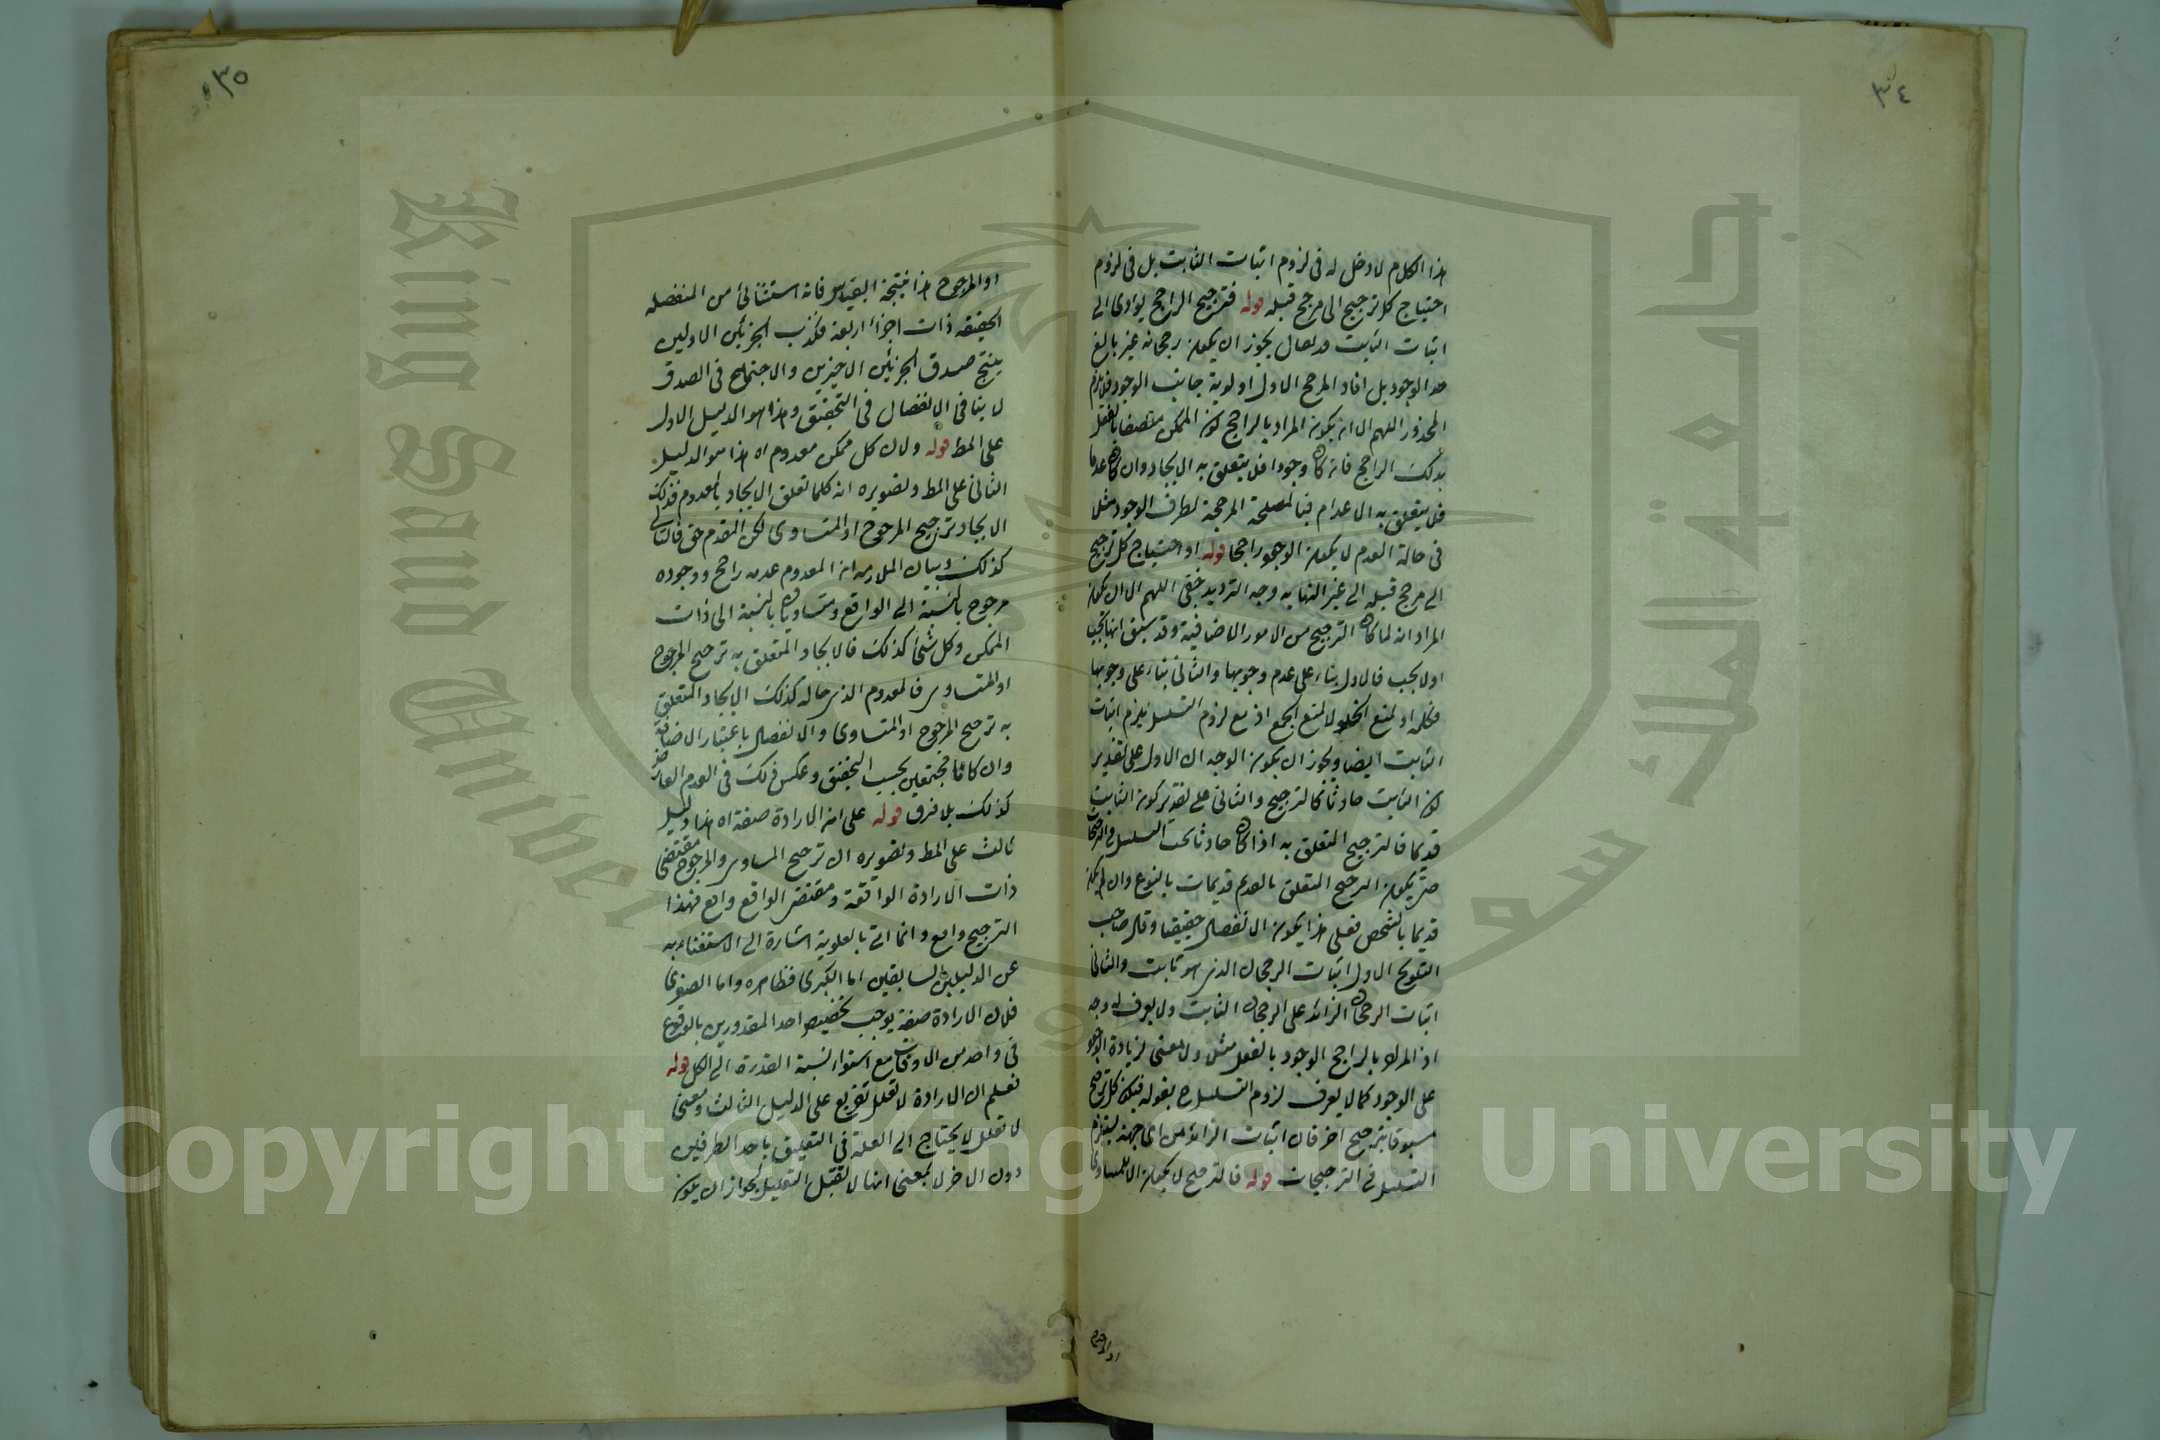 ٣٤
هذا الكلام لا دخل له فى لزوم اثبات الثابت بل فى لزوم
احتياج كل ترجيح الى مرجح قبله قوله فترجيح الراجح يؤدى الى
اثبات الثابت قد يقال يجوز ان يكون رجحانه غير بالغ
حد الوجود بل افاد المرجح الاول اولوية جانب الوجود فلا يلزم
المحذور اللهم الا ان يكون المراد بالراجح كون الممكن متصفا بالفعل
بذلك الراجح فانه كان وجودا فلا يتعلق به الايجاد وان كان عدما
فلا يتعلق به الاعدام فبالمصلحة المرجحة لطرف الوجود مثلا
فى حالة العدم لا يكون الوجود راجحا قوله او احتياج كل ترجيح
الى مرجح قبله الى غير النهاية وجه الترديد خفى اللهم الا ان يكون
المراد انه لما كان الترجيح من الامور الاضافية وقد سبق انها تجب
او لا يجب فالاول بناء على عدم وجوبها والثانى بناء على وجوبها
فكلمة او لمنع الخلو لا لمنع الجمع اذ مع لزوم التسلسل يلزم اثبات
الثابت ايضا ويجوز ان يكون الوجه ان الاول على تقدير
كون الثابت حادثا كالترجيح والثانى على تقدير كون الثابت
قديما فالترجيح المتعلق به اذا كان حادثا يجب التسلسل فى الترجيحات
حتى يكون الترجيح المتعلق بالقديم قديمات بالنوع وان لم يكن
قديما بالشخص فعلى هذا يكون الانفصال حقيقيا وقال صاحب
التلويح الاول اثبات الرجحان الذى هو ثابت والثانى
اثبات الرجحان الزائد على الرجحان الثابت ولا يعرف له وجه
اذ المراد بالراجح الوجود بالفعل مثلا ولا معنى لزيادة الوجود
على الوجود كما لا يعرف لزوم التسلسل ح بقوله فيكون كل ترجيح
مسبوقا بترجيح اخر فان اثبات الزائد من اى جهة يستلزم
التسلسل فى الترجيحات قوله فالترجيح لا يكون الا للمساوى
او المرجوح
٣٥
او المرجوح هذا نتيجة القياس فانه استثنائى من المنفصله
الحقيقه ذات اجزاء اربعة فكذب الجزئين الاولين
ينتج صدق الجزئين الاخيرين والاجتماع فى الصدق
لا ينافى الانفصال فى التحقيق وهذا هو الدليل الاول
على المط قوله ولان كل ممكن معدوم اه هذا هو الدليل
الثانى على المط وتصويره انه كلما تعلق الايجاد بالمعدوم فذلك
الايجاد ترجيح المرجوح او المتساوى لكن المقدم حق فالتالى
كذلك وبيان الملازمه ان المعدوم عدمه راجح ووجوده
مرجوح بالنسبة الى الواقع ومتساويان بالنسبة الى ذات
الممكن وكل شئ كذلك فالايجاد المتعلق به ترجيح المرجوح
او المتساوى فالمعدوم الذى حاله كذلك الايجاد المتعلق
به ترجيح المرجوح او المتساوى والانفصال باعتبار الاضافة
وان كانا مجتمعين بحسب التحقق وعكس ذلك فى العدم العارض
كذلك بلا فرق قوله على ان الارادة صفة اه هذا دليل
ثالث على المط وتصويره ان ترجيح المساوى والمرجوح مقتضى
ذات الارادة الواقعة ومقتضى الواقع واقع فهذا
الترجيح واقع وانما اتى بالعلوية اشارة الى الاستغناء به
عن الدليلين السابقين اما الكبرى فظاهره واما الصغرى
فلان الارادة صفة يوجب تخصيص احد المقدورين بالوقوع
فى واحد من الاوقات مع استواء نسبة القدرة الى الكل قوله
فعلم ان الارادة لا تعلل تفريع على الدليل الثالث ومعنى
لا تعلل لا يحتاج الى العلة فى التعليق باحد الطرفين
دون الاخر لا بمعنى انها لا تقبل التعليل لجواز ان يكون
King Saud University
جامعة الملك سعود
Copyright © King Saud University